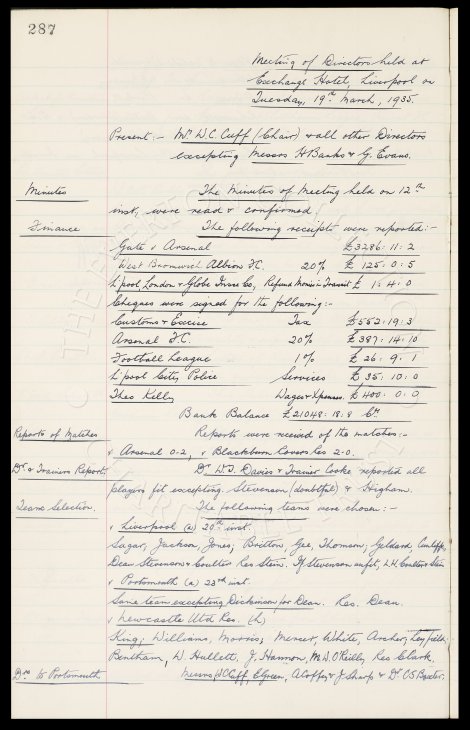 287
Meeting of Directors held at
Exchange Hotel, Liverpool on
Tuesday, 19th March, 1935.
Present:- Mr. W.C. Cuff (Chair) & all other Directors
excepting Messrs H Banks & G. Evans.
Minutes The Minutes of Meeting held on 12th
inst, were read & confirmed
Finance The following receipts were reported:-
Gate v Arsenal £3286:11:2
West Bromwich Albion F.C. 20% £ 125:0:5
L'pool London & Globe Insce Co, Refund Monies in Transit £ 1:4:0
Cheques were signed for the following:-
Customs & Excise Tax £552:19:3
Arsenal F.C. 20% £387:14:10
Football League 1% £ 26:9:1
L'pool City Police Services £ 35:10:0
Theo Kelly Wages & Xpenses £400:0:0
Bank Balance £21048:18:8 Cr.
Reports of Matches Reports were received of the matches:-
v Arsenal 0-2, v Blackburn Rovers Res 2-0.
Dr. & Trainers Report. Dr. W.D. Davies & Trainer Cooke reported all
players fit excepting Stevenson (doubtful) & Higham.
Team Selection. The following teams were chosen:-
v Liverpool (a) 20th inst.
Sagar, Jackson, Jones; Britton, Gee, Thomson; Geldard, Cunliffe,
Dean Stevenson & Coulter Res Stein. If Stevenson unfit, L.H. Coulter Stein
v Portsmouth (a) 23rd inst.
Same team excepting Dickinson for Dean. Res. Dean.
v Newcastle Utd Res. (h)
King; Williams, Morris; Mercer, White, Archer; Leyfield,
Bentham, W. Hullett, J. Hannon, M.W. O'Reilly, Res Clark.
Drs to Portsmouth. Messrs, W.C. Cuff, E. Green, A Coffey & J Sharp & Dr. C S Baxter.
THE EVERTON COLLECTION